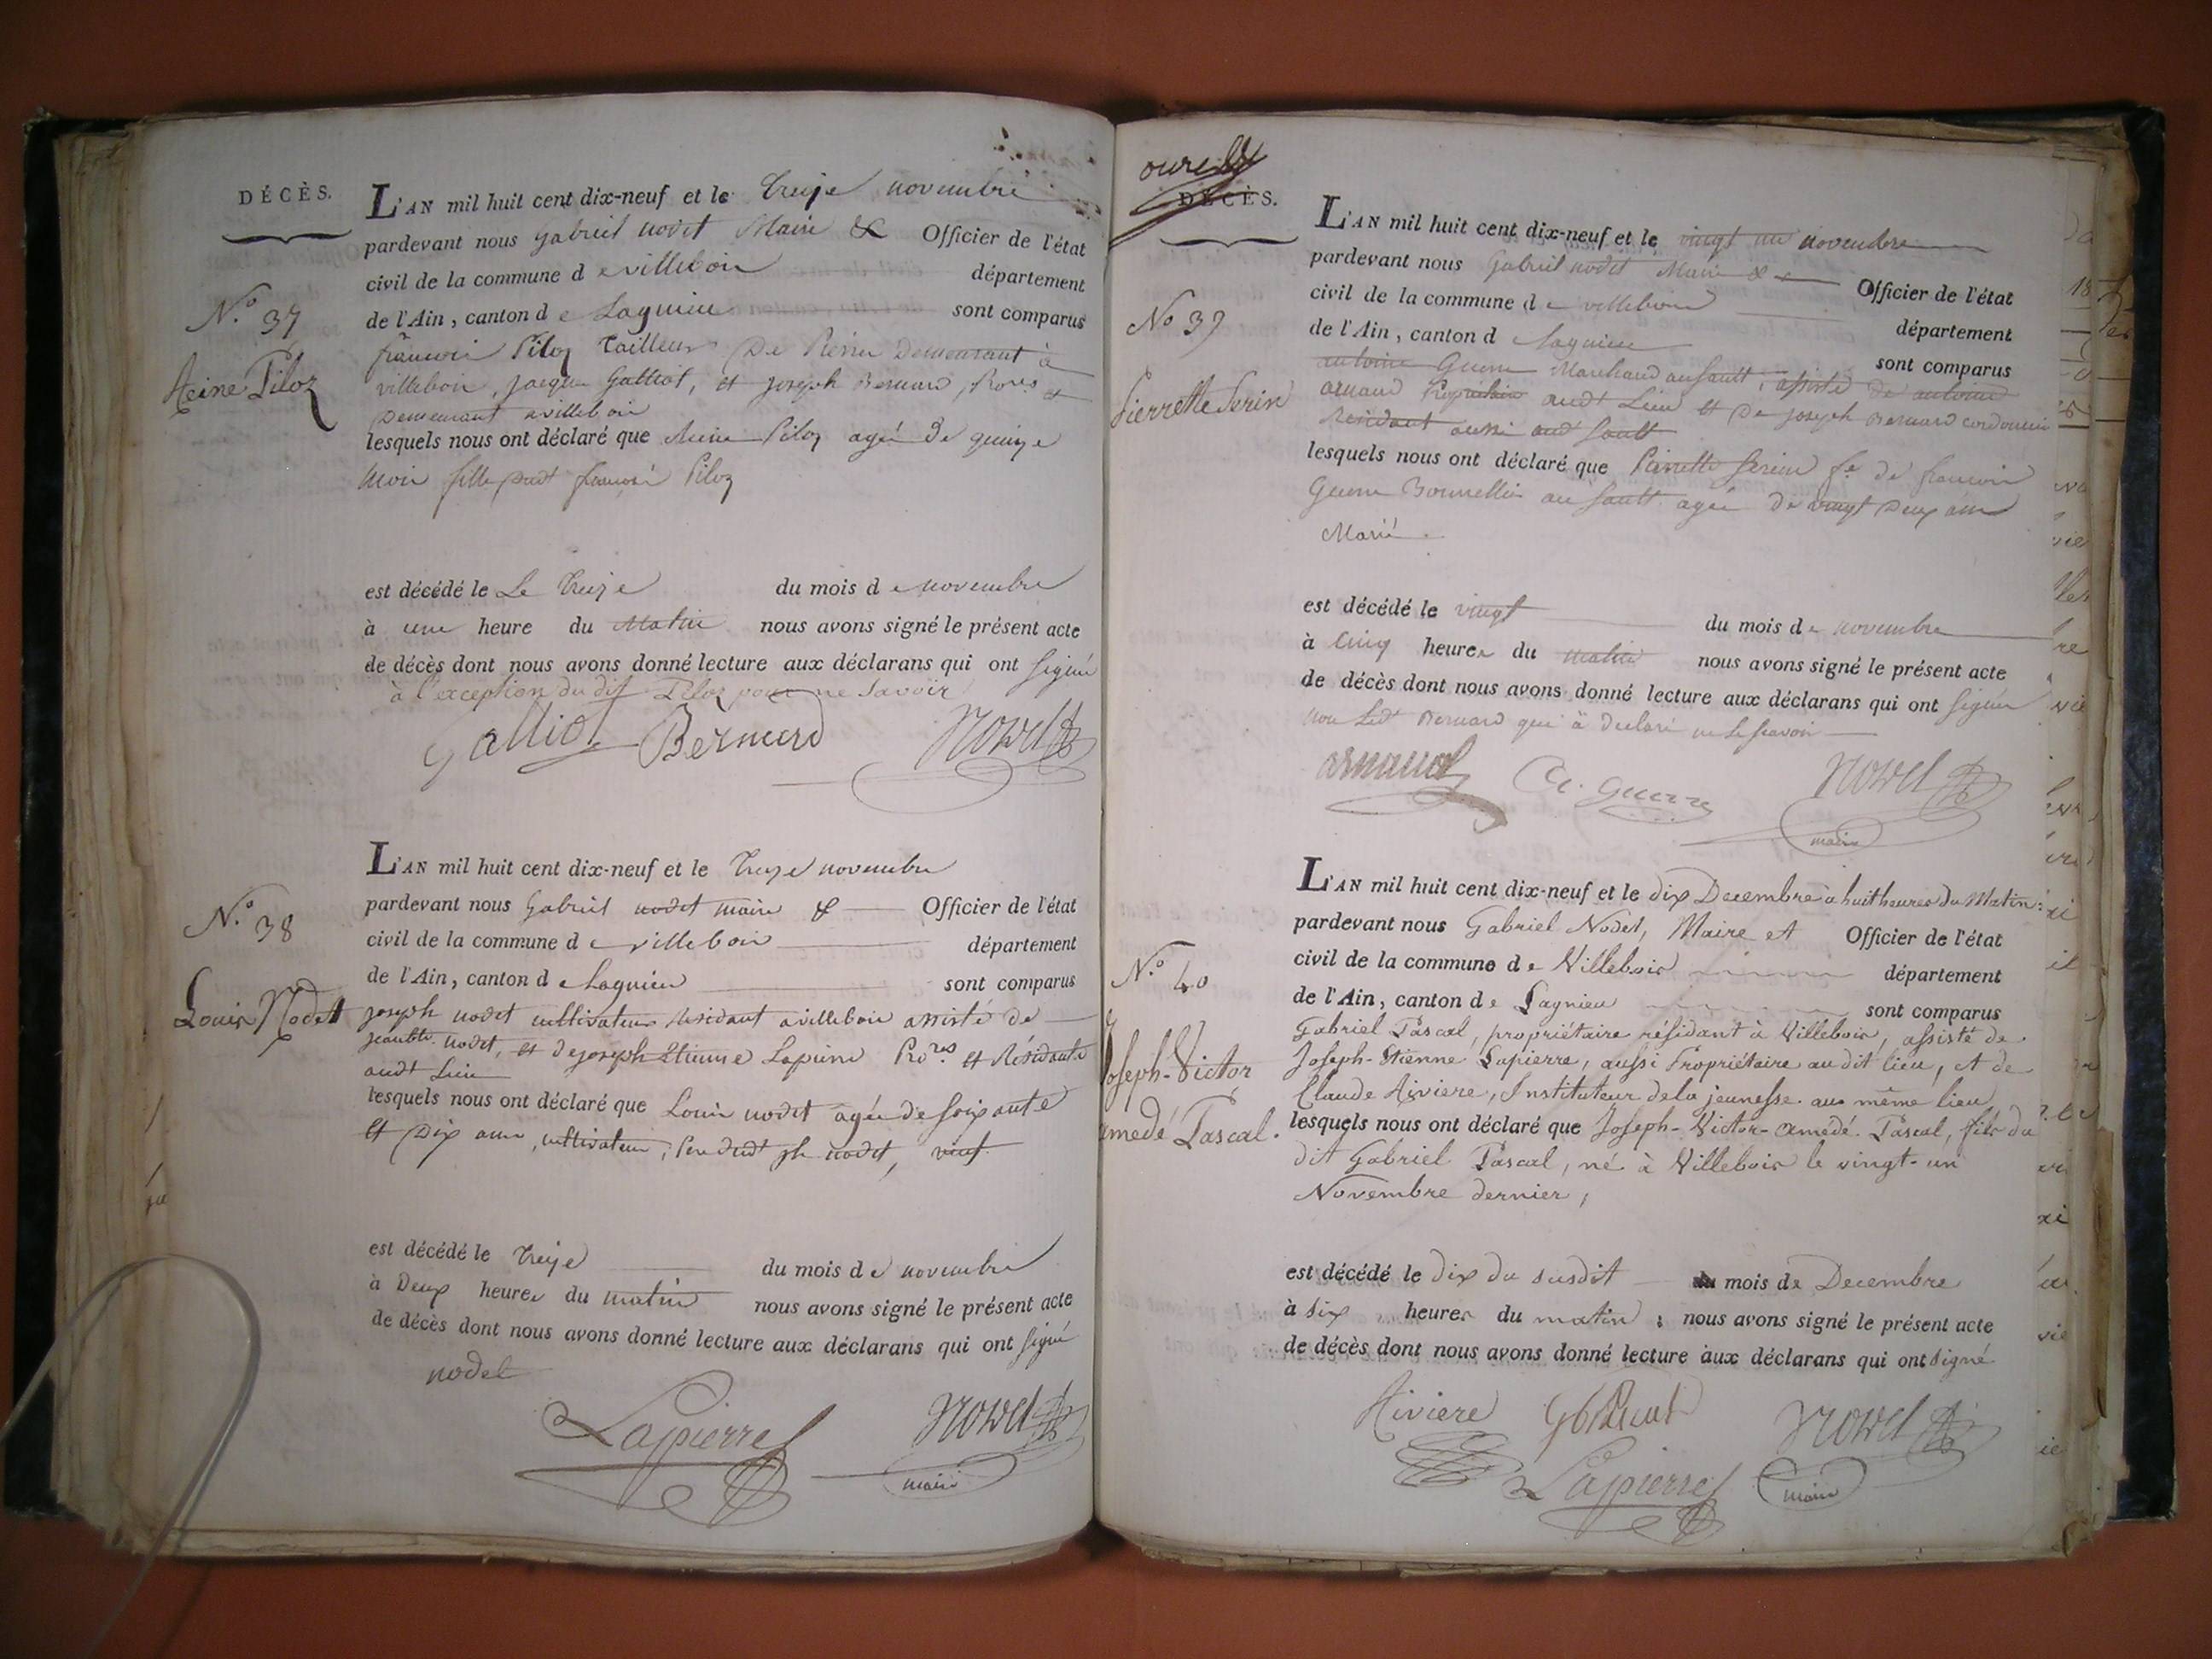 DÉCÈS.
L'AN mil huit cent dix-neuf et le treize novembre
pardevant nous gabriel nodet Maire & Officier de l'état
civil de la commune de villebois département
de l'Ain, canton de Lagnieu sont comparus
N.o 37
Reine Piloz
françois Piloz Tailleur De Pierre Demeurant à
villebois, jacque Galliot, et joseph Bernard, Pro.res et
Demeurant a villebois
lesquels nous ont déclaré que Reine Piloz agée De quinze
Mois fille dudt françois Piloz
est décédé le Le treize du mois de novembre
à une heure du Matin nous avons signé le présent acte
de décès dont nous avons donné lecture aux déclarans qui ont signé
à l'exception du dit Piloz pour ne savoir
Galliot Bernard Nodet
L'AN mil huit cent dix-neuf et le treize novembre
pardevant nous Gabriel nodet maire & Officier de l'état
civil de la commune de villebois département
de l'Ain, canton de Lagnieu sont comparus
N.o 38
Louis Nodet
joseph nodet cultivateur Résidant a villebois assisté de
jean bte. nodet, et de joseph Etienne Lapierre Pro.res et Résidants
audt Lieu
lesquels nous ont déclaré que Louis nodet agée de soixante
et Dix ans, cultivateur, Pere dudt jh nodet, veuf
est décédé le treize du mois de novembre
à Deux heures du matin nous avons signé le présent acte
de décès dont nous avons donné lecture aux déclarans qui ont signé
nodet
Lapierre Nodet
maire
DÉCÈS.
L'AN mil huit cent dix-neuf et le vingt un novembre
pardevant nous Gabriel nodet Maire & Officier de l'état
civil de la commune de villebois département
de l'Ain, canton d Lagnieu sont comparus
No 39
Pierrette Serin
antoine Guerre Marchand au Sault, assisté de antoine
arnaud Propriétaire audt Lieu et De joseph Bernard cordonnier
Résidant aussi audt Sault
lesquels nous ont déclaré que Pierrette Serin fe. de françois
Guerre Bourrellier au Sault agée de vingt Deux ans
Marié
est décédé le vingt du mois de novembre
à Cinq heures du matin nous avons signé le présent acte
de décès dont nous avons donné lecture aux déclarans qui ont signé
non Ledt Bernard qui a déclaré ne le scavoir
arnaud A. Guerre Nodet
maire
L'AN mil huit cent dix-neuf et le dix Decembre à huit heures du Matin:
pardevant nous Gabriel Nodet, Maire et Officier de l'état
civil de la commune de Villebois département
de l'Ain, canton de Lagnieu sont comparus
N.o 40
Joseph-Victor
amedé Pascal.
Gabriel Pascal, propriétaire résidant à Villebois, assisté de
Joseph-Etienne Lapierre, aussi Propriétaire au dit lieu, et de
Claude Riviere, Instituteur de la jeunesse au même lieu
lesquels nous ont déclaré que Joseph-Victor-amedé Pascal, fils du
dit Gabriel Pascal, né à Villebois le vingt-un
Novembre dernier,
est décédé le dix du susdit du mois de Decembre
à six heures du matin; nous avons signé le présent acte
de décès dont nous avons donné lecture aux déclarans qui ont signé
Riviere Nodet
Lapierre maire